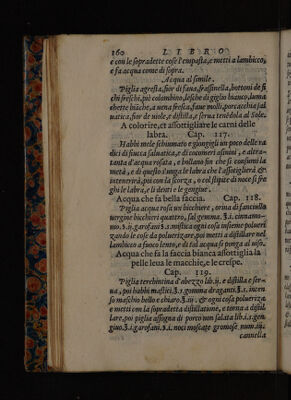 160 LIBRO
e con le sopradette cose l'empasta, e metti a lambicco,
e fa acqua come di sopra.
Acqua al simile.
Piglia agresta, fior di faua, frassinella, bottoni de fi
chi freschi, piè colombino, lesche di giglio bianco, luma
chette biãche, auena fresca, faue molti, porcacchia sal
uatica, fior de uiole, e distilla, e serua tenēdola al Sole.
A colorire, et assottigliare le carni delle
labra. Cap. 117.
Habbi mele schiumato e giongegli un poco delle ra
dici di succa saluatica, e di cocomeri asinini, e altra-
tanta d'acqua rosata, e bullano fin che si consumi la
metà, e di questo l'unga le labra che l'assotiglierà &
intenerirà, poi con la scorza, o col stipite di noce se fre
ghi le labra, e li denti e le gengiue.
Acqua che fa bella faccia. Cap. 118.
Piglia acqua rosa un bicchiere, orina di fanciulla
uergine bicchieri quattro, sal gemma. ʒ.i. cinnamo-
mo. ʒ.ij. garofani ʒ. mastica ogni cosa insieme polueri
zando le cose da poluerizare, poi metti a distillare nel
lambicco a fuoco lento, e di tal acqua si ponga al uiso.
Acqua che fa la faccia bianca assottiglia la
pelle leua le macchie, e le crespe.
Cap. 119.
Piglia terebintina d'abezzo lib.ij. e distilla e ser-
ua, poi habbi mastici. ʒ.i. gomma draganti. ʒ.i. incen
so maschio bello e chiaro. ʒ.iij. & ogni cosa poluerizza
e metti con la sopradetta distillatione, e torna a distil
lare, poi piglia assogna di porco non salata lib.i.ʒ.i. gen
giuo. ʒ.i. garofani. ʒ.i. noci moscate gromose num.iij.
cannella